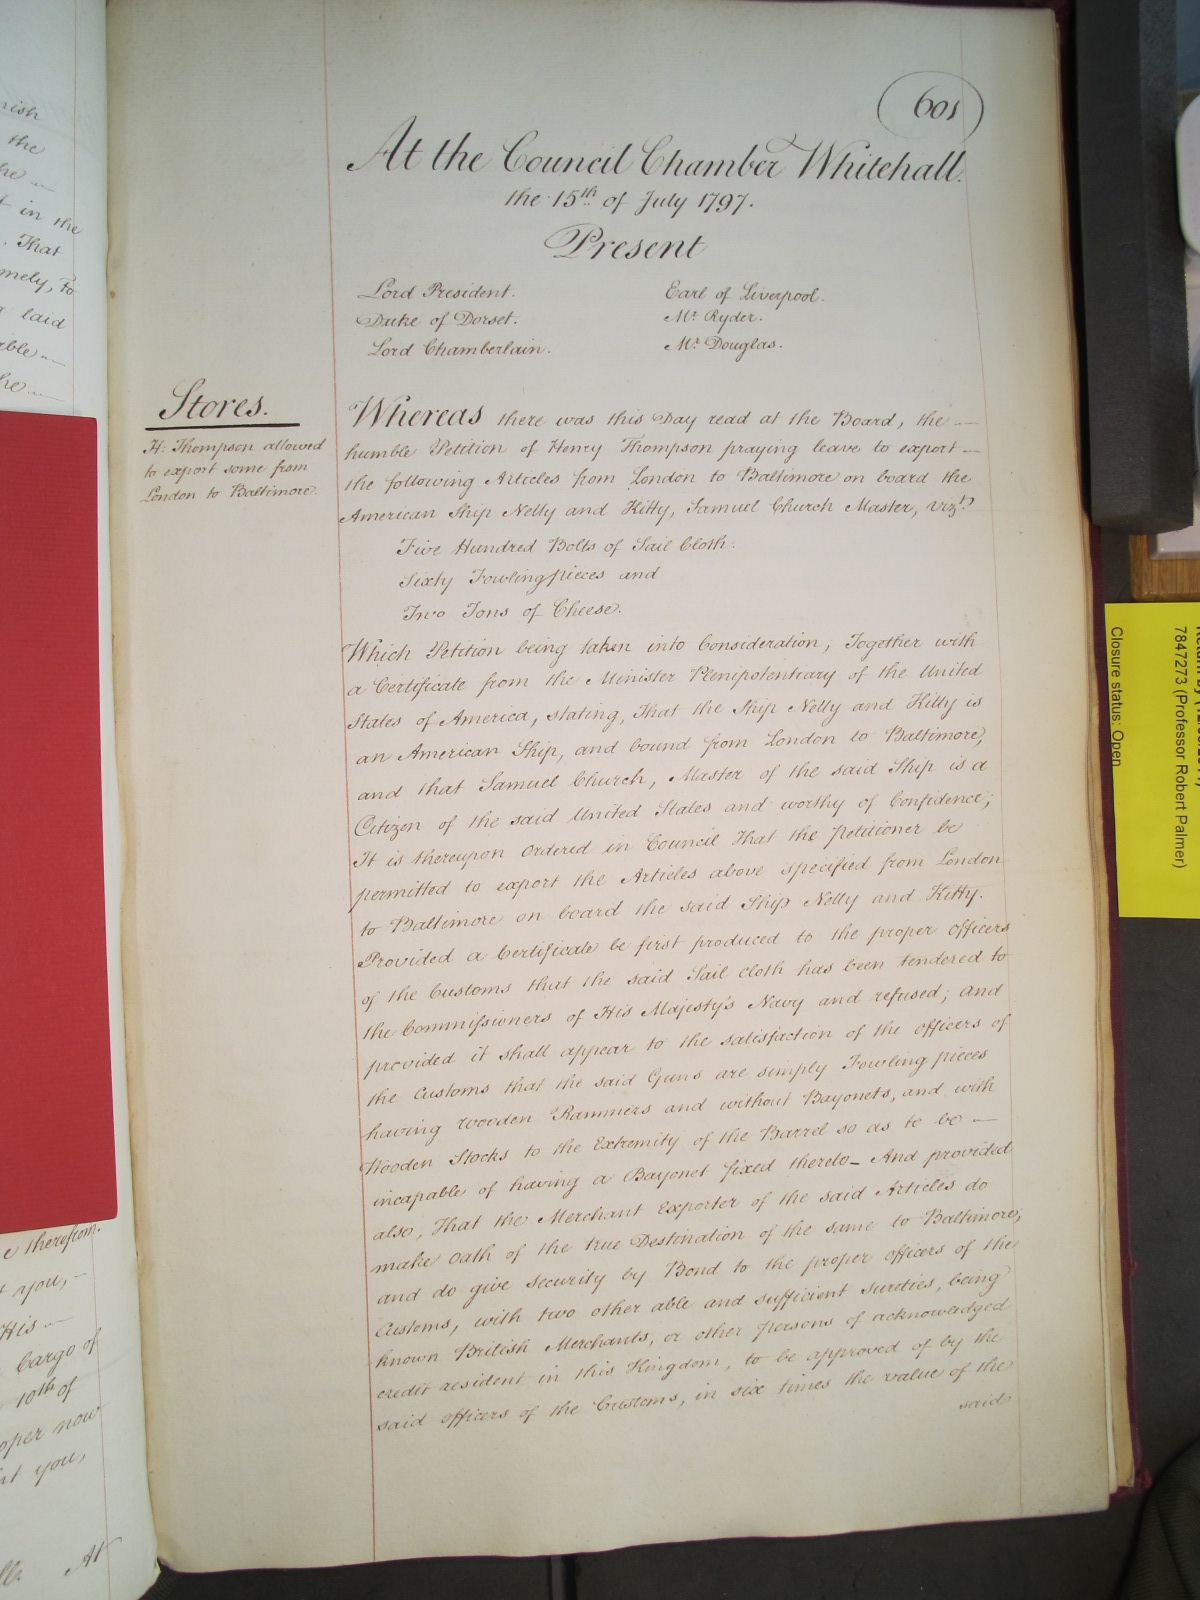 601
At the Council Chamber Whitehall.
the 15th of July 1797.
Present
Lord President.
Duke of Dorset.
Lord Chamberlain.
Earl of Liverpool.
Mr Ryder.
Mr Douglas.
Stores.
H: Thompson allowed
to export some from
London to Baltimore.
Whereas there was this Day read at the Board, the
humble Petition of Henry Thompson praying leave to export
the following Articles from London to Baltimore on board the
American Ship Nelly and Kitty, Samuel Church Master, vizt
Five Hundred Bolts of Sail Cloth.
Sixty Fowlingpieces and
Two Tons of Cheese.
Which Petition being taken into Consideration, Together with
a Certificate from the Minister Plenipotentiary of the United
States of America, stating, That the Ship Nelly and Kitty is
an American Ship, and bound from London to Baltimore,
and that Samuel Church, Master of the said Ship is a
Citizen of the said United States and worthy of Confidence;
It is thereupon Ordered in Council That the Petitioner be
permitted to export the Articles above specified from London
to Baltimore on board the said Ship Nelly and Kitty.
Provided a Certificate be first produced to the proper Officers
of the Customs that the said Sail Cloth has been tendered to
the Commissioners of His Majesty's Navy and refused; And
provided it shall appear to the satisfaction of the Officers of
the Customs that the said Guns are simply Fowling pieces
having wooden Rammers and without Bayonets, and with
Wooden Stocks to the Extremity of the Barrel so as to be
incapable of having a Bayonet fixed thereto_ And provided
also, That the Merchant Exporter of the said Articles do
make Oath of the true Destination of the same to Baltimore,
and do give security by Bond to the proper officers of the
Customs, with two other able and sufficient sureties, being
known British Merchants, or other persons of acknowledged
credit resident in this Kingdom, to be approved of by the
said officers of the Customs, in six times the value of the
said
the
in the
That
laid
you,
His
Cargo of
10th of
now
you,
At
7847273 (Professor Robert Palmer)
Closure status: Open